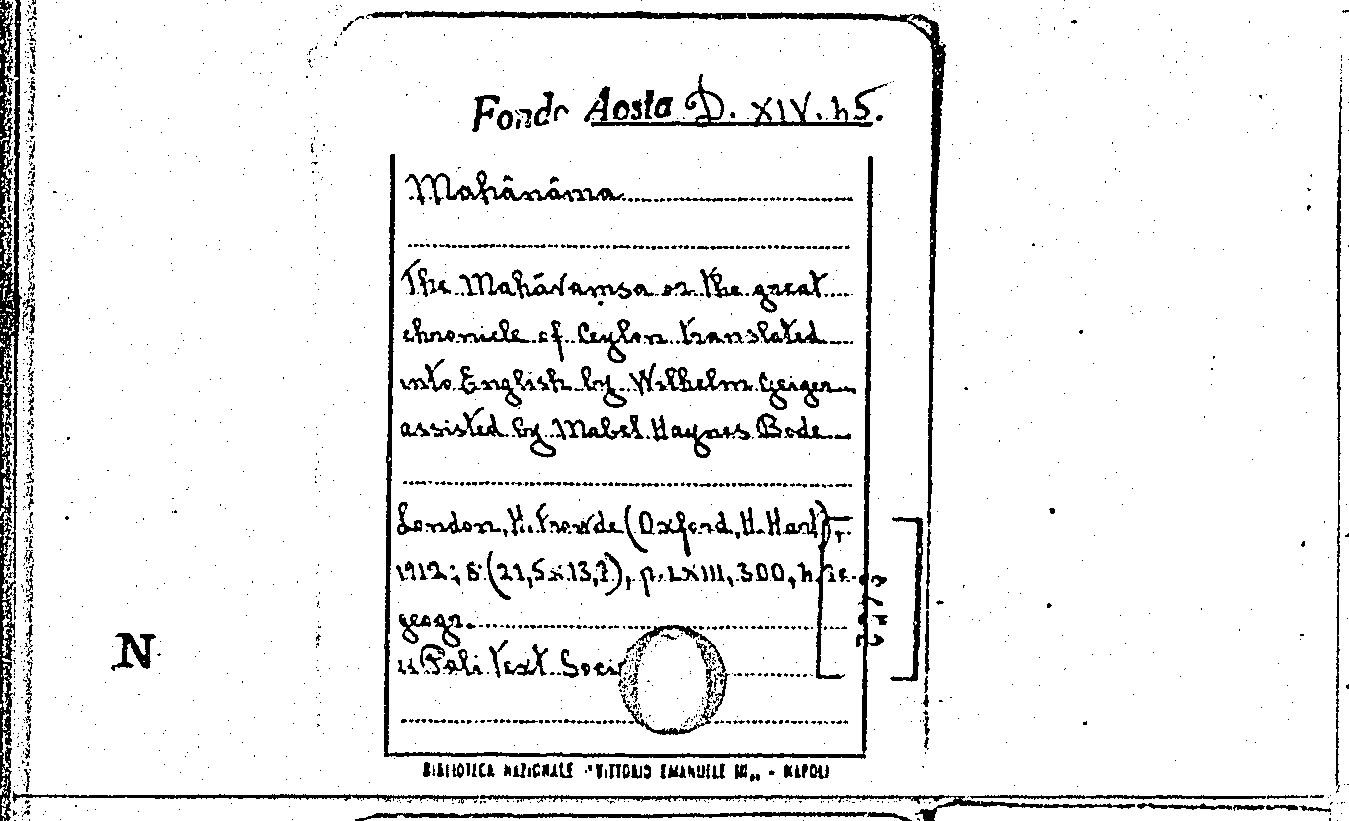 Fondo Aosta D. XIV. h5.
Mahânâma
The Mahāvaṃsa or the great
chronicle of Ceylon translated
into English by Wilhelm Geiger
assisted by Mabel Haynes Bode
London, H. Frowde (Oxford, H. Hart),
1912; 8° (21,5x13,2), p. LXIII, 300,
geogr.
"Pali Text Soci
N
BIBLIOTECA NAZIONALE "VITTORIO EMANUELE III" - NAPOLI